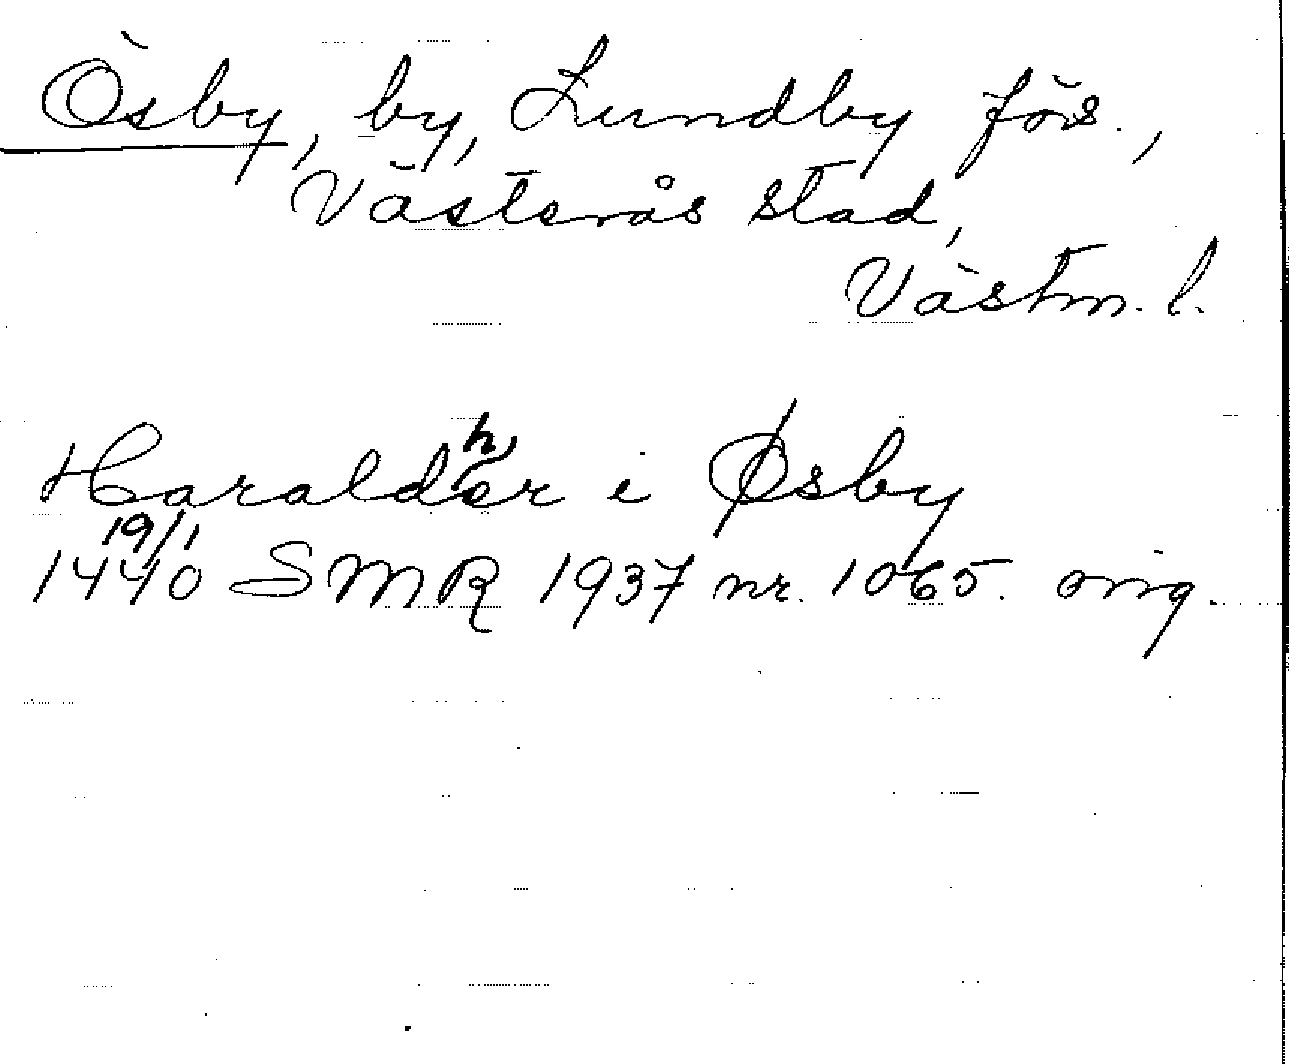 Ösby, by, Lundby förs.,
Västerås stad,
Västm. l.
Haraldher i Øsby
19/1 1440 SMR 1937 nr. 1065. orig.